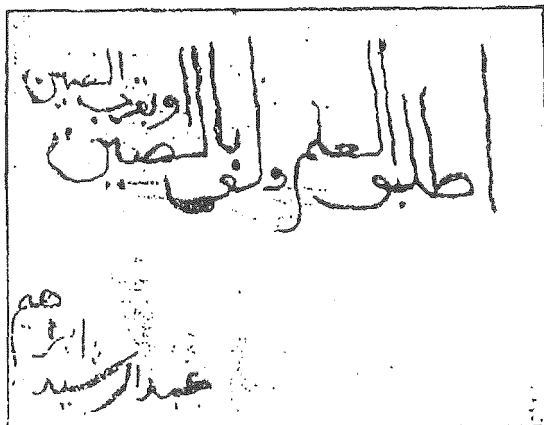 اطلبو العلم ولو بالصين
او بقرب
الصين
عبدالرشيد
ابرا
هم